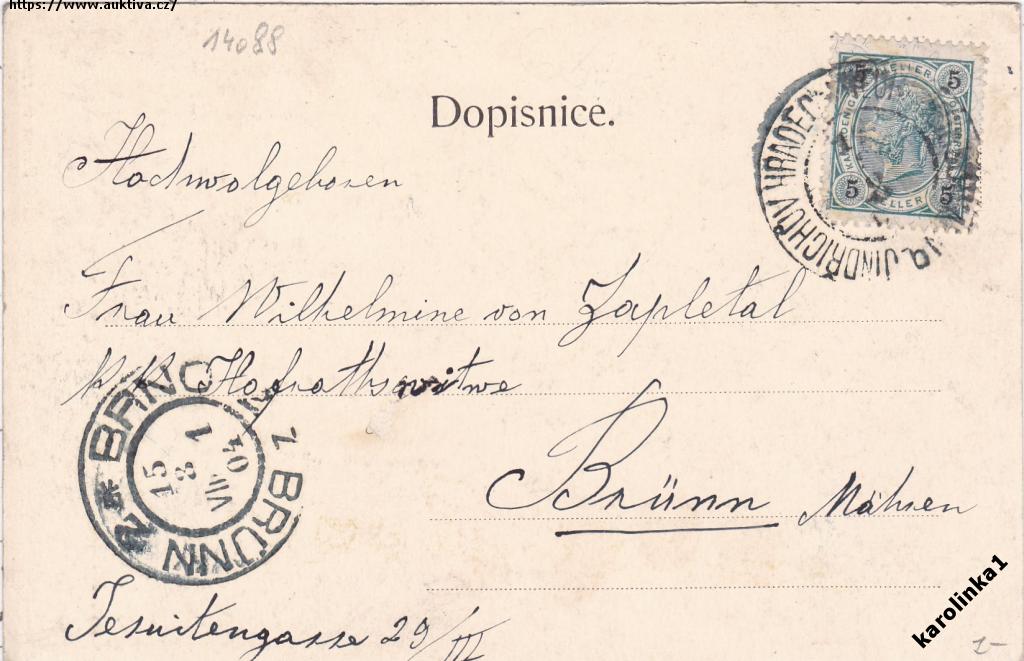 https://www.auktiva.cz/
14088
Dopisnice.
5 HELLER 5
5 HELLER 5
JINDŘICHŮV HRADEC
Hochwolgeboren
Frau Wilhelmine von Zapletal
k. k. Hofrathswitwe
Brünn Mähren
BRNO 2 BRÜNN 2
15
8 1
VIII
04
Jesuitengasse 29/III
karolinka1